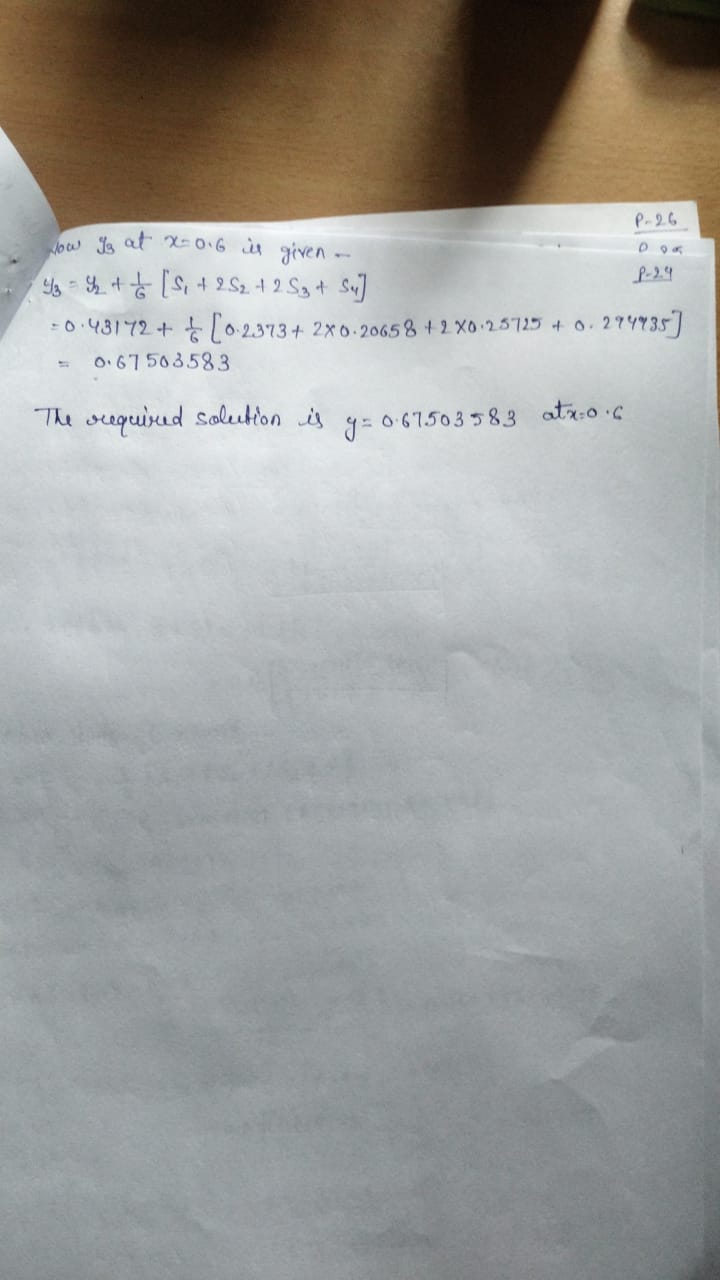 P-26
P-24
Now y₃ at x=0.6 is given -
y₃ = y₂ + 1/6 [S₁ + 2S₂ + 2S₃ + S₄]
= 0.43172 + 1/6 [0.2373 + 2×0.20658 + 2×0.25725 + 0.294935]
= 0.67503583
The required solution is y = 0.67503583 at x=0.6